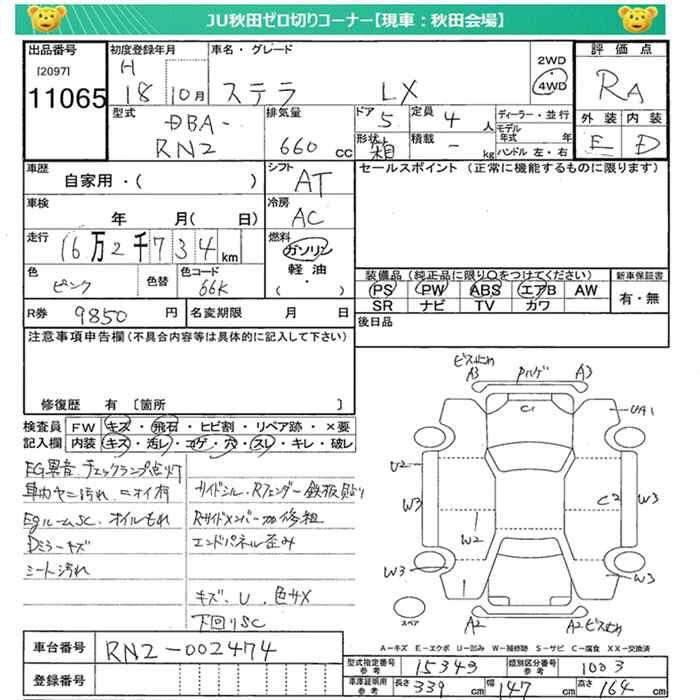 JU秋田ゼロ切りコーナー【現車：秋田会場】
出品番号 初度登録年月 車名・グレード 評価点
[2097] H 2WD
11065 18 10月 ステラ LX 4WD RA
型式 排気量 ドア 5 定員 4人 ディーラー・並行 外装 内装
DBA- モデル年式 年
RN2 660cc 形状 箱 積載 - kg ハンドル 左・右 E D
車歴 シフト セールスポイント（正常に機能するものに限ります）
自家用・（ ） AT
車検 冷房
年 月（ 日） AC
走行 燃料
16万2千734km ガソリン
色 色替 色コード 軽油 装備品（純正品に限り○をつけてください） 新車保証書
ピンク 66K （ ） PS PW ABS エアB AW 有・無
SR ナビ TV カワ
R券 9850円 名変期限 月 日 後日品
注意事項申告欄（不具合内容等は具体的に記入して下さい）
修復歴 有 〔箇所 〕
検査員 FW キズ・飛石・ヒビ割・リペア跡・×要
記入欄 内装 キズ・汚レ・コゲ・穴・スレ・キレ・破レ
EG異音 チェックランプ点灯
車内ヤニ汚れ ニオイ有 サイドシル・Rフェンダー鉄板貼り
Egルームsc. オイルもれ Rサイドメンバー加修粗
Dミラーキズ エンドパネル歪み
シート汚れ
キズ、U、色サメ
下回りSC
ビス止め
A3 Pハゲ A3
C1
UA1
U2
W3 C2 W3
W2
W3 W3
スペア A2 A2 ビス止め
A－キズ E－エクボ U－凹み W－補修跡 S－サビ C－腐食 XX－交換済
車台番号 RN2-002474
型式指定番号 参考 15343 類別区分番号 参考 1003
登録番号
車庫証明用 参考 長さ 339cm 幅 147cm 高さ 164cm